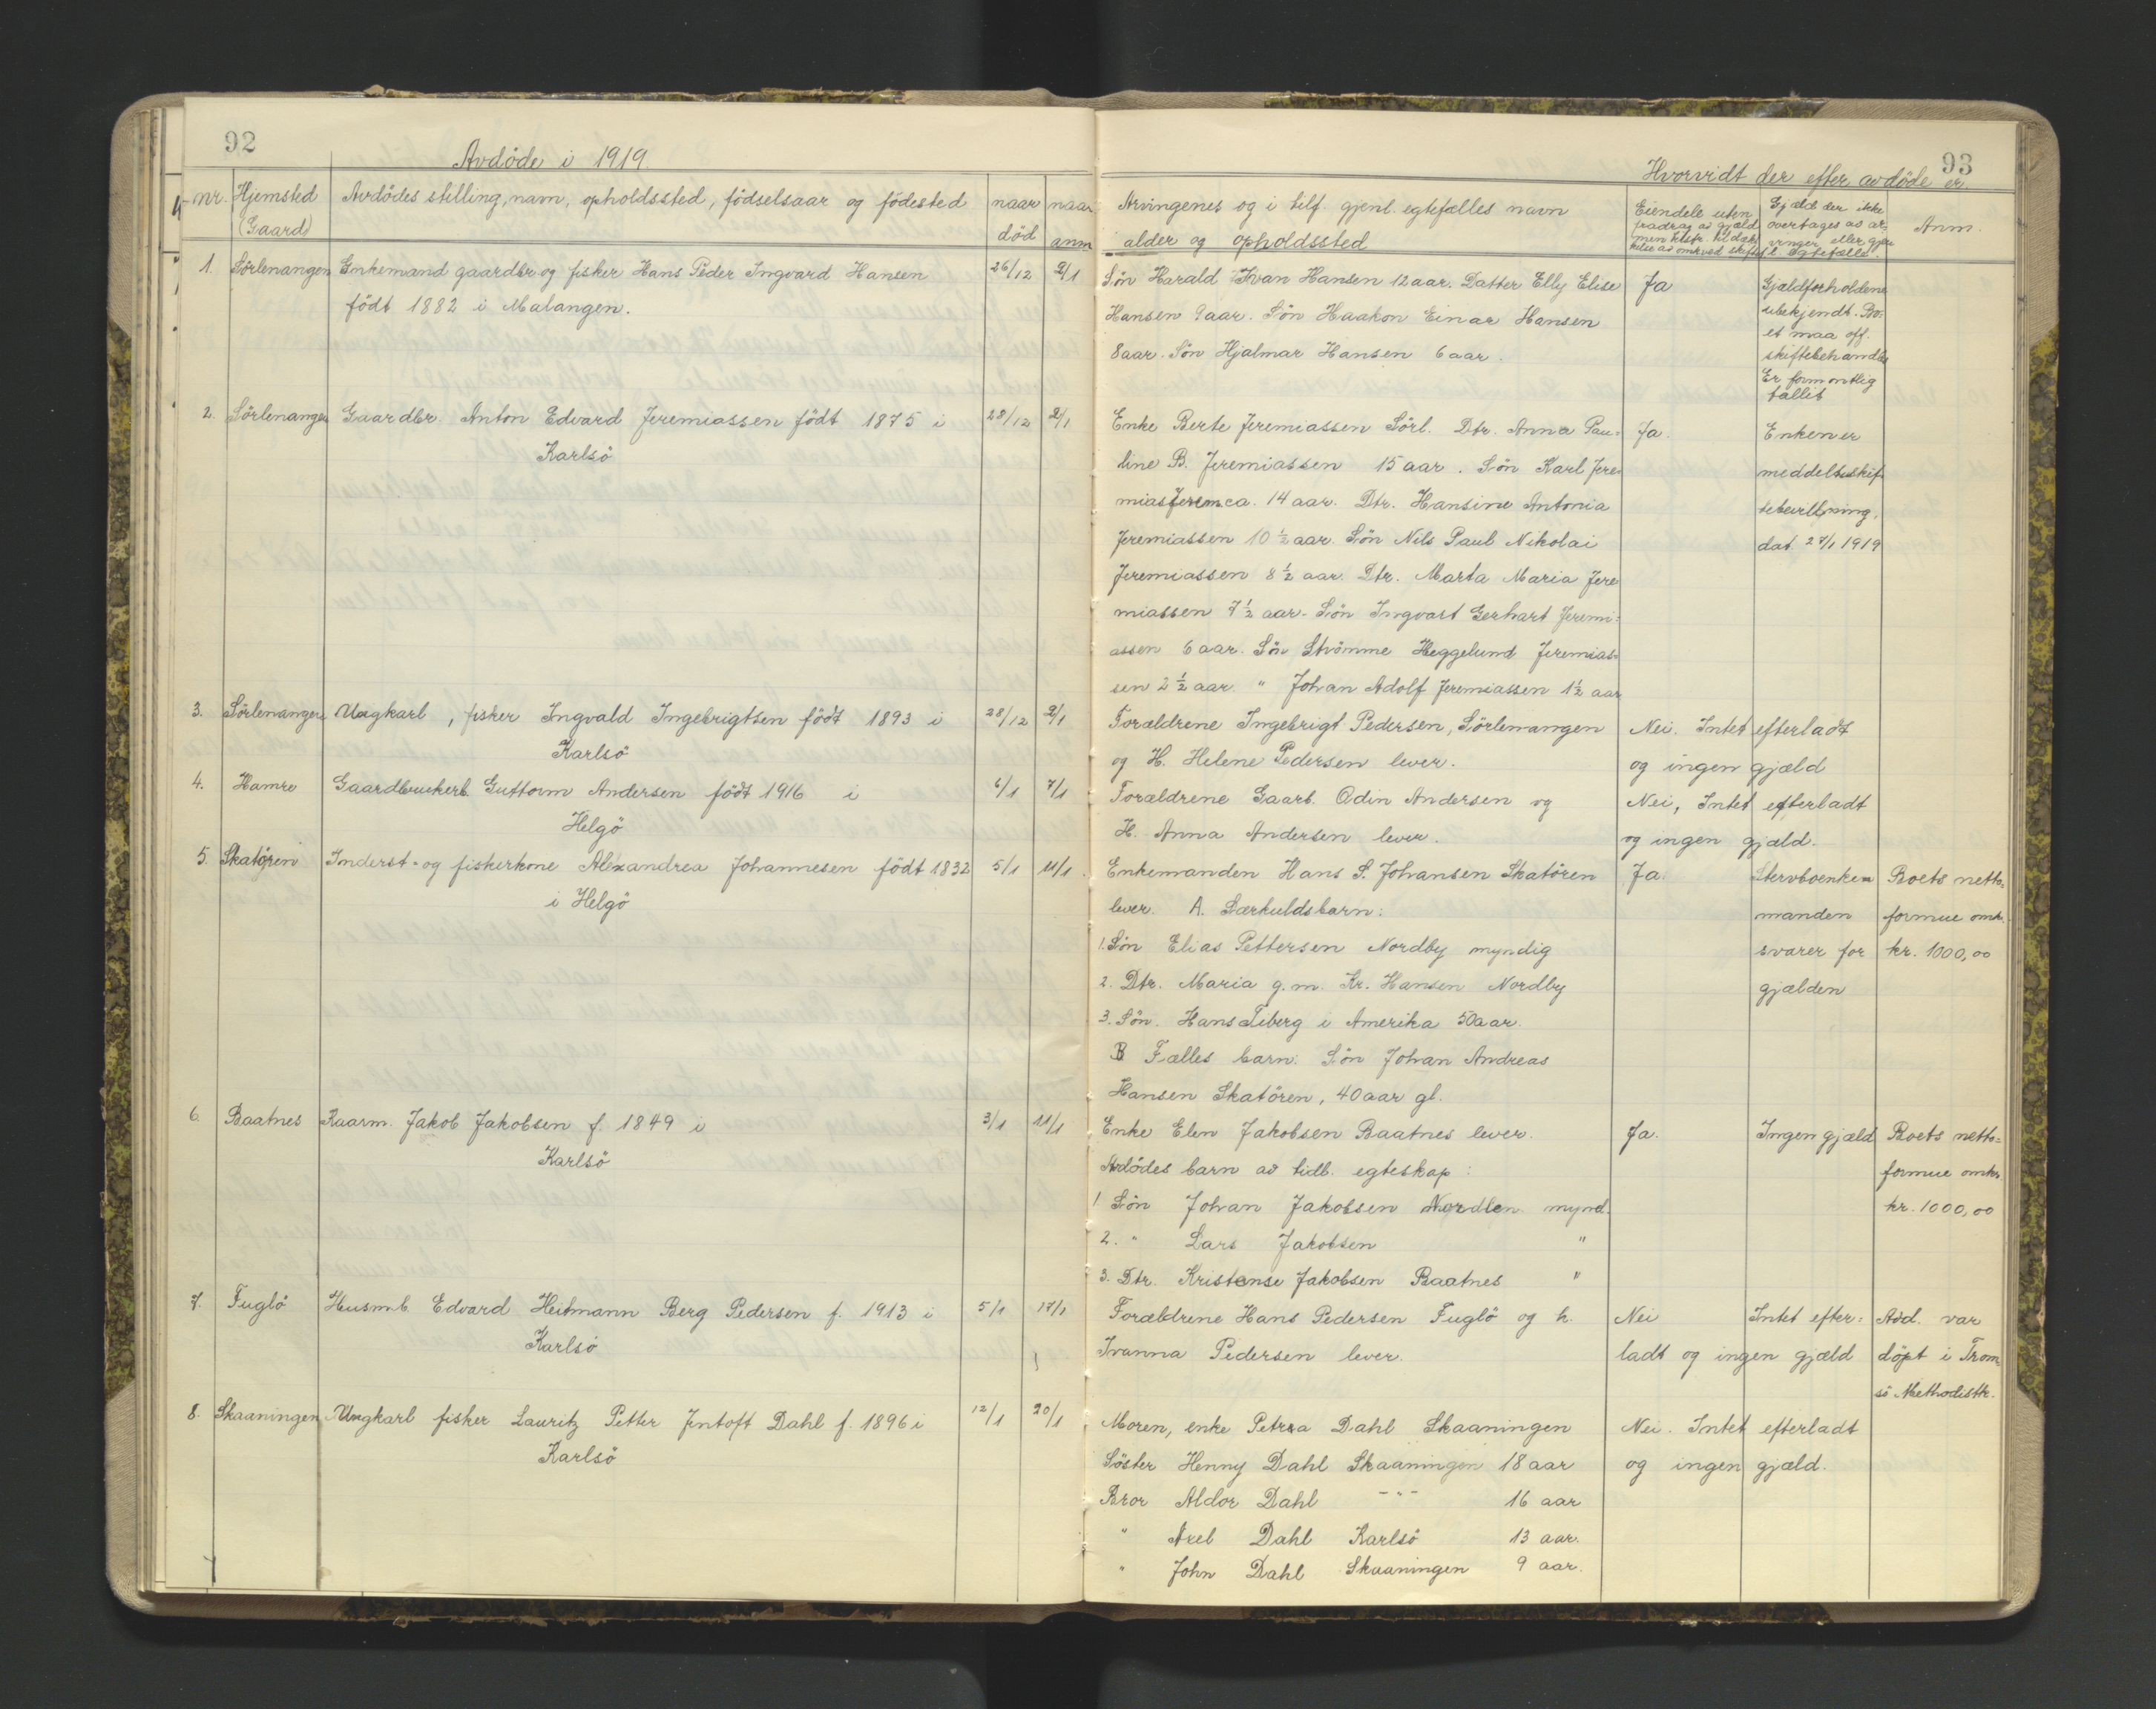 92
Avdöde i 1919.
nr. Hjemsted (Gaard)
Avdödes stilling, navn, opholdssted, födselsaar og födested
naar död
naar anm
1. Sörlenangen Enkemand gaardbr. og fisker Hans Peder Ingvard Hansen 26/12 2/1
födt 1882 i Malangen.
2. Sörlenangen Gaardbr. Anton Edvard Jeremiassen födt 1875 i 28/12 2/1
Karlsö
3. Sörlenangen Ungkarl, fisker Ingvald Ingebrigtsen födt 1893 i 28/12 2/1
Karlsö
4. Hamre Gaardbrukerb. Guttorm Andersen födt 1916 i 6/1 7/1
Helgö
5. Skatören Inderst- og fiskerkone Alexandrea Johannesen födt 1832 5/1 11/1
i Helgö
6. Baatnes Kaarm. Jakob Jakobsen f. 1849 i 3/1 11/1
Karlsö
7. Fuglö Husmb. Edvard Heitmann Berg Pedersen f. 1913 i 5/1 17/1
Karlsö
8. Skaaningen Ungkarl fisker Lauritz Petter Jentoft Dahl f. 1896 i 12/1 20/1
Karlsö
93
Hvorvidt der efter avdöde er
Arvingenes og i tilf. gjenl. egtefælles navn
alder og opholdssted
Eiendele uten
fradrag av gjæld
Gjæld der ikke
overtages av ar-
vinger eller gjen
l. Egtefælle.
Anm.
Sön Harald Ivan Hansen 12 aar. Datter Elly Elise Ja Gjældforholdene
Hansen 9 aar. Sön Haakon Einar Hansen ubekjendt. Bo-
et maa off.
8 aar. Sön Hjalmar Hansen 6 aar. skiftebehandles
Er formentlig
fallit
Enke Berte Jeremiassen Sörl. Dtr. Anna Pau- Ja. Enken er
line B. Jeremiassen 15 aar. Sön Karl Jere- meddelt uskif-
mias Jerem. ca. 14 aar. Dtr. Hansine Antonia tebevillning,
Jeremiassen 10 ½ aar. Sön Nils Paul Nikolai dat. 27/1 1919
Jeremiassen 8 ½ aar. Dtr. Marta Maria Jere
miassen 7 ½ aar. Sön Ingvart Gerhart Jeremi-
assen 6 aar. Sön Strömme Heggelund Jeremias-
sen 2 ½ aar. " Johan Adolf Jeremiassen 1½ aar
Forældrene Ingebrigt Pedersen, Sörlenangen Nei. Intet efterladt
og H. Helene Pedersen lever. og ingen gjæld
Forældrene Gaarb. Odin Andersen og Nei, Intet efterladt
H. Anna Andersen lever. og ingen gjæld.
Enkemanden Hans S. Johansen Skatören Ja. Stervboenke- Boets netto-
lever. A. Særkuldsbarn: manden formue omk.
1. Sön Elias Pettersen Nordby myndig svarer for kr. 1000,00
2. Dtr. Maria g.m. Kr. Hansen Nordby gjælden
3. Sön. Hans Teiberg i Amerika 50 aar.
B Fælles barn: Sön Johan Andreas
Hansen Skatören, 40 aar gl.
Enke Elen Jakobsen Baatnes lever. Ja. Ingen gjæld Boets netto-
Avdödes barn av tidl. egteskap: formue omkr
1 Sön Johan Jakobsen Nordlen mynd. kr. 1000,00
2. " Lars Jakobsen "
3. Dtr. Kristense Jakobsen Baatnes "
Forældrene Hans Pedersen Fuglö og h. Nei Intet efter- Avd. var
Ivanna Pedersen lever. ladt og ingen gjæld döpt i Trom
sö Methodistk.
Moren, enke Petrea Dahl Skaaningen Nei. Intet efterladt
Söster Henny Dahl Skaaningen 18 aar og ingen gjæld.
Bror Aldor Dahl -"- 16 aar
" Axel Dahl Karlsö 13 aar.
" John Dahl Skaaningen 9 aar.